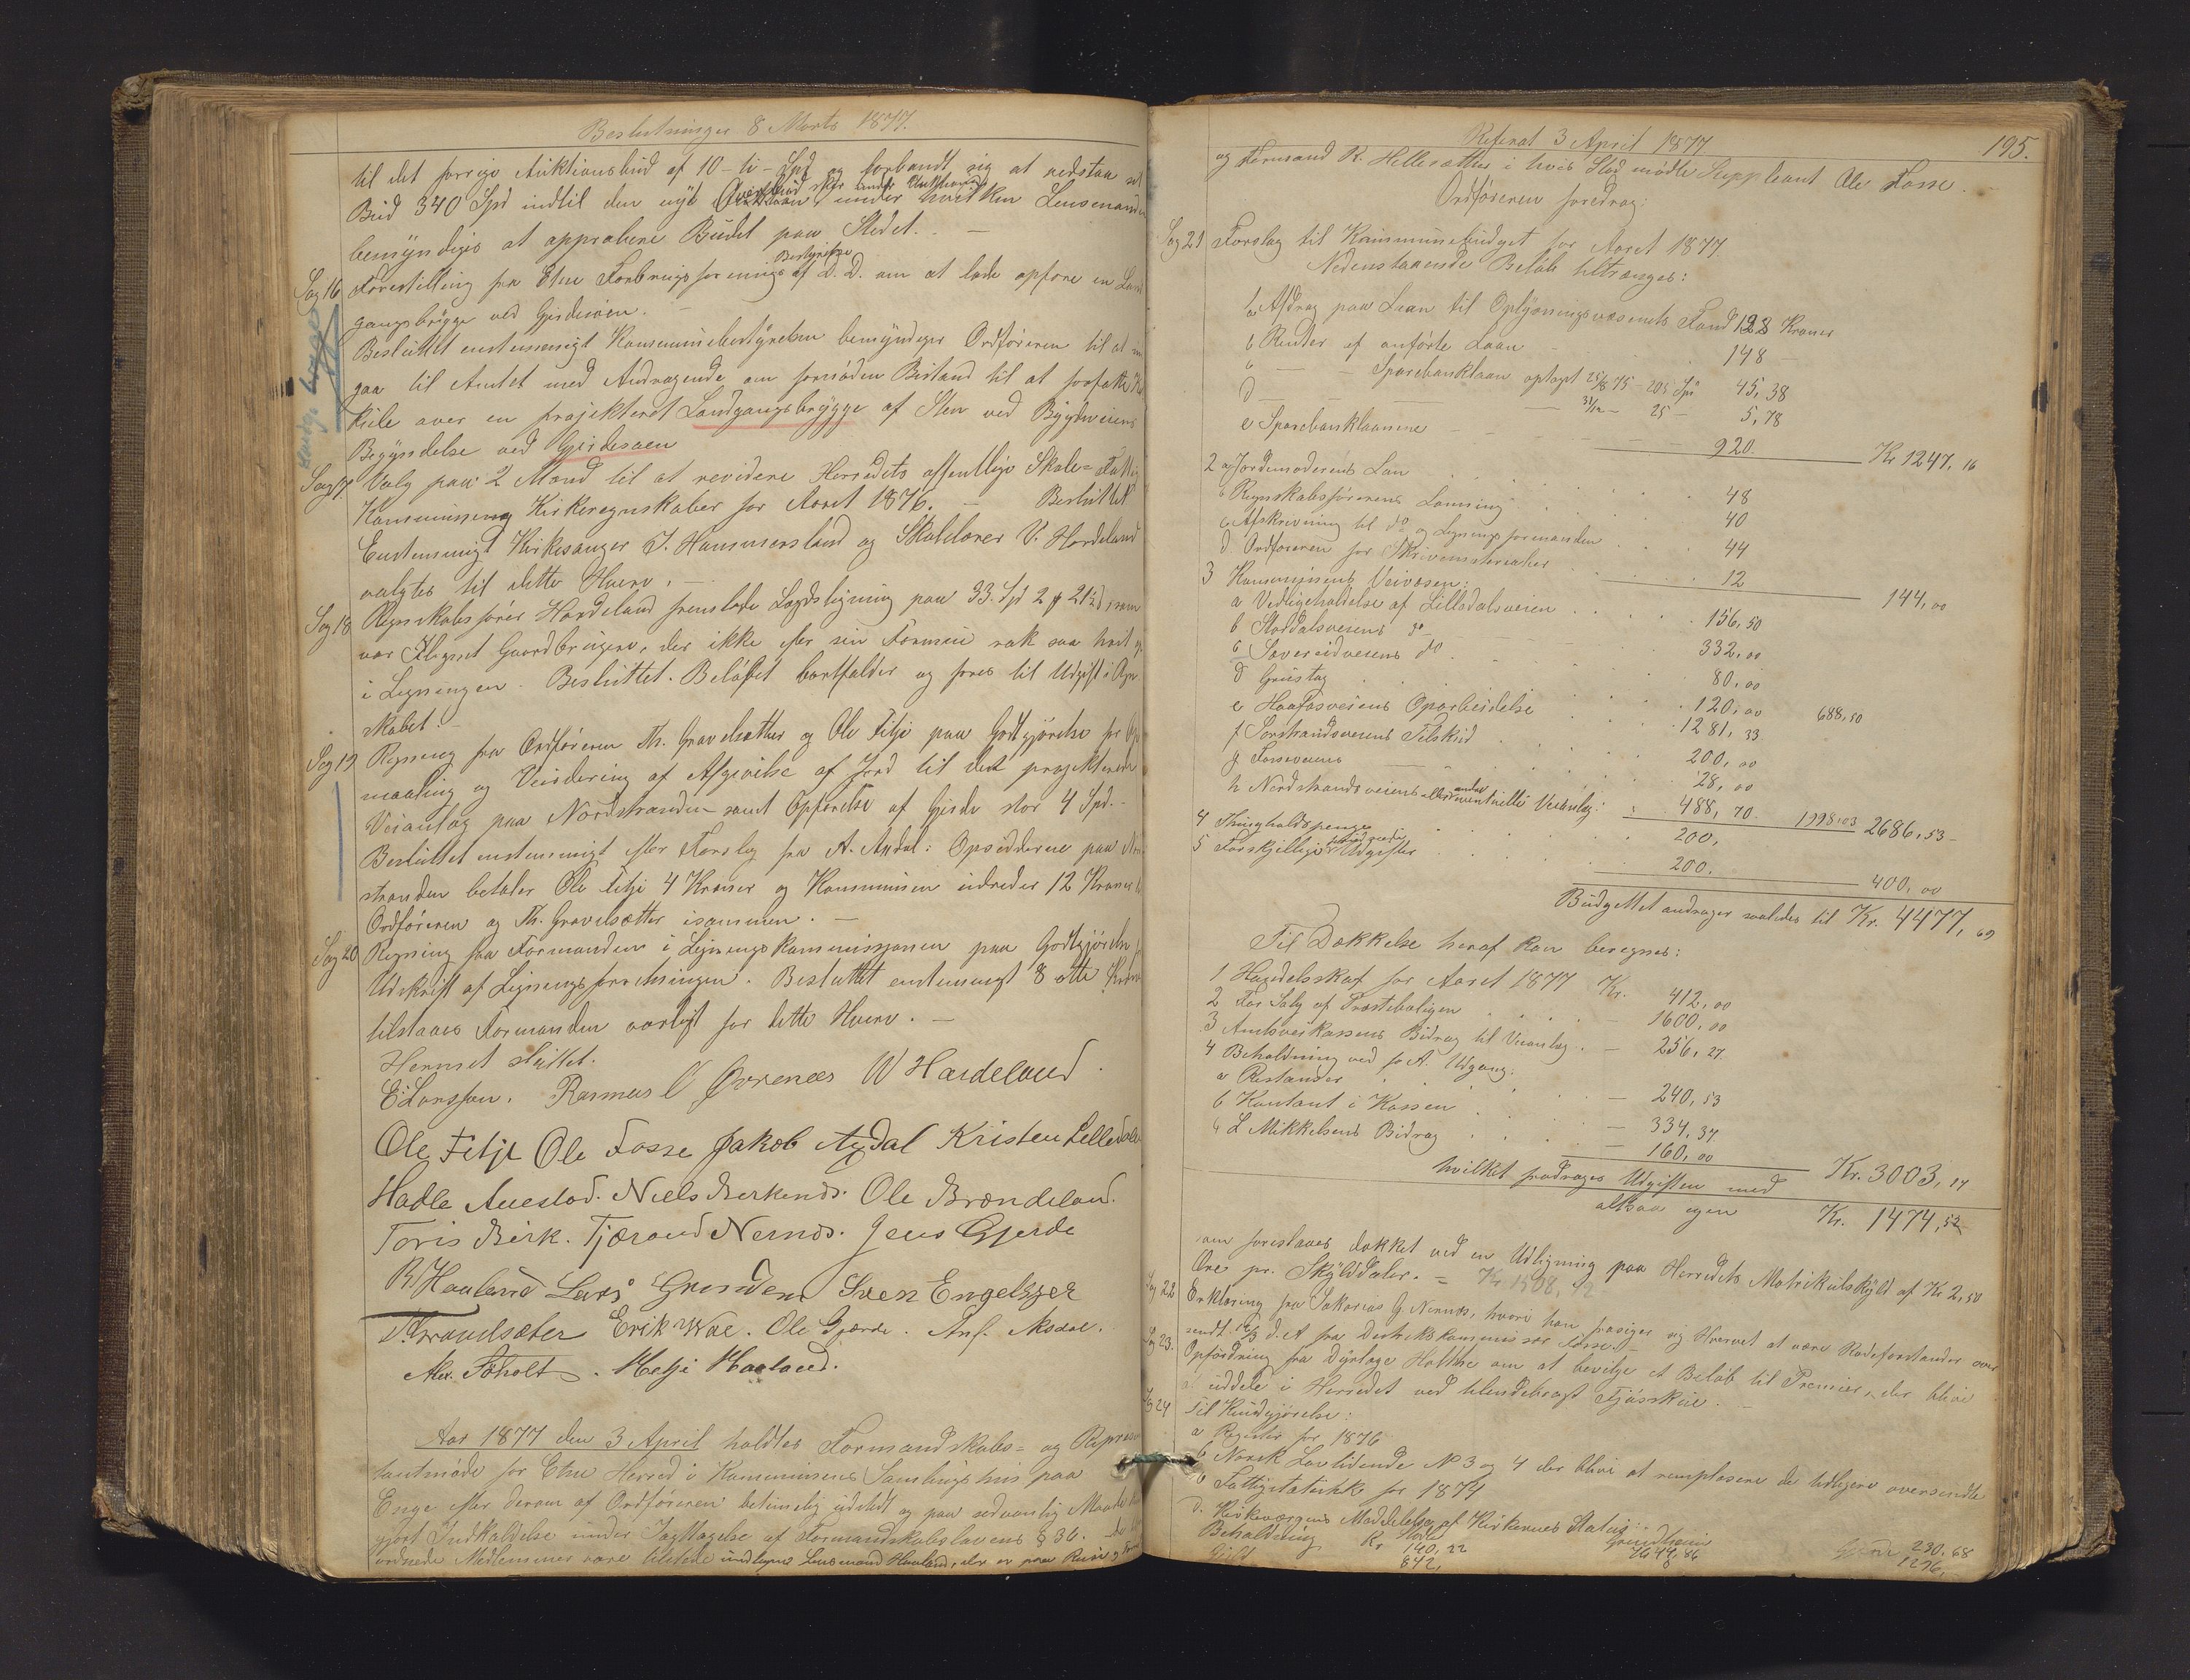 Beslutninger 8 Marts 1877.
til det forrige Auktionsbud af 10-ti-Spd og forbandt sig at vedstaa sit
Overbud sker under Auktion
Bud 340 Spd indtil den nye Auktion under hvilken Lensmanden
bemyndiges at approbere Budet paa Stedet. —
Bestyrelse
Sag 16 Forestilling fra Etne Forbrugsforenings af D. D. om at lade opføre en Land
gangsbrygge ved Gjerdesøen. —
Besluttet enstemmigt Kommunebestyrelsen bemyndiger Ordføreren til at ind
gaa til Amtet med Andragende om fornøden Bistand til at forfatte
over en projekteret Landgangsbrygge af Sten ved Bygdeveiens
Begyndelse ved Gjerdesøen
Sag 17 Valg paa 2 Mænd til at revidere Herredets offentlige Skole= Fattig
Kommune og Kirkeregnskaber for Aaret 1876. — Besluttet
Enstemmigt Kirkesanger J. Hammersland og Skolelærer V. Hardeland
valgtes til dette Hverv. —
Sag 18 Regnskabsfører Hardeland fremlagde Lægdsligning paa 33 Spd 2 21½ , som
var Ilignet Gaardbrugere, der ikke efter sin Formue rak saa højt
i Ligningen. Besluttet. Beløbet bortfalder og føres til Udgift i Regn
skabet. —
Sag 19 Regning fra Ordføreren Th. Gravelsæther og Ole Fitje paa Godtgjørelse for Op
maaling og Vurdering af Afgivelse af Jord til det projekterede
Veianlæg paa Nordstranden samt Opførelse af Gjerde stor 4 Spd. —
Besluttet enstemmigt efter Forslag fra A. Axdal: Opsidderne paa Nord
stranden betaler Ole Fitje 4 Kroner og Kommunen udreder 12 Kroner til
Ordføreren og Th. Gravelsætter isammen. —
Sag 20 Regning fra Formanden i Ligningskommissionen paa Godtgjørelse for
Udskrift af Ligningsforretningen. Besluttet enstemmigt 8 otte Kroner
tilstaaes Formanden aarligt for dette Hverv. —
Hermed sluttet.
E. Larsson. Rasmus V Øvrenæs W Hardeland.
Ole Fitje Ole Fosse Jakob Axdal Kristen Lilledal
Hadle Auestad. Niels Berkenæs. Ole Brændeland.
Toris Birk. Tjærand Nernæs. Jens Gjerde
R Haaland Lars Grindem Sven Engelsgjer
Erik Wae. Ole Gjerde. Anf. Aksdal.
Alex. Foholt. Helje Haaland.
Aar 1877 den 3 April holdtes Formandskabs= og Repræsen
tantmøde for Etne Herred i Kommunens Samlingshus paa
Enge efter derom af Ordføreren betimelig udstedt og paa sedvanlig Maade
gjort Indkaldelse under Iagttagelse af Formandskabslovens § 36.
Medlemmer vare tilstede undtagen Lensmand Haaland, der er paa Reise og
Referat 3 April 1877
195.
og Formand R. Hellesæther i hvis Sted mødte Suppleant Ole Fosse.
Ordføreren foredrog:
Sag 21 Forslag til Kommunebudget for Aaret 1877
Nedenstaaende Beløb tiltrænges:
1 a Afdrag paa Laan til Oplysningsvæsenets Fond 128 Kroner
b Renter af anførte Laan 148 —
c — — Sparebanklaan optaget 25/8 75 – 205 Spd 45,38
d — — — 31/12 – 25 — 5,78
e Sparebanklaanene 920. Kr 1247,16
2 a Jordemoderens Løn 48
b Regnskabsførerens Lønning 40
c Afskrivning til do og Ligningsformanden 44
d. Ordføreren for Skrivematerialier 12 144,00
3 Kommunens Veivæsen:
a Vedligeholdelse af Lilledalsveien 156,50
b Stordalsveiens do 332,00
c Sævereidveiens do 80,00
d Grustag 120,00 688,50
e Haafosveiens Oparbeidelse 1281,33
f Sørstrandsveiens Tilskud 200,00
g Fosseveiens 28,00
h Nordstrandsveiens eller andre eventuelle Veianlæg: 488,70 1998,03 2686,53
4 Thingholdspenge 200,
5 Forskjellige Udgifter 200. 400,00
Budgettet andrager saaledes til Kr. 4477,69
Til Dækkelse heraf kan beregnes:
1 Handelsskat for Aaret 1877 Kr. 412,00
2 For Salg af Præsteboligen 1600,00
3 Amtsveikassens Bidrag til Veianlæg. — 256,27
4 Beholdning ved f. A. Udgang:
a Restancer — 240,53
b Kontant i Kassen — 334,37
c L Mikkelsens Bidrag — 160,00 Kr. 3003,17
hvilket fradrages Udgiften med
altsaa igjen Kr. 1474,52
som foreslaaes dækket ved en Udligning paa Herredets Matrikulskyld af Kr 2,50
Øre pr. Skylddaler. = Kr 1508,
Sag 22 Erklæring fra Sakarias G. Nernæs, hvori han frasiger sig Hvervet at være Rodeforstander over
sendt d. A fra Distriktskommissær Fosse. —
Sag 23. Opfordring fra Dyrlæge Holthe om at bevilge et Beløb til Præmier, der blive
at uddele i Herredet ved tilendebragt Fjøsskue. —
Sag 24 Til Kundgjørelse:
a Register for 1876
b Norsk Lovtidende No 3 og 4 der blive at remplasere de tidligere oversendte
c Fattigstatistik for 1874
d. Kirkeværgens Meddelelse af Kirkernes Status:
Beholdning Kr 140,22 Grindheim 7644,86 230,68
Gjeld 842, 1276,